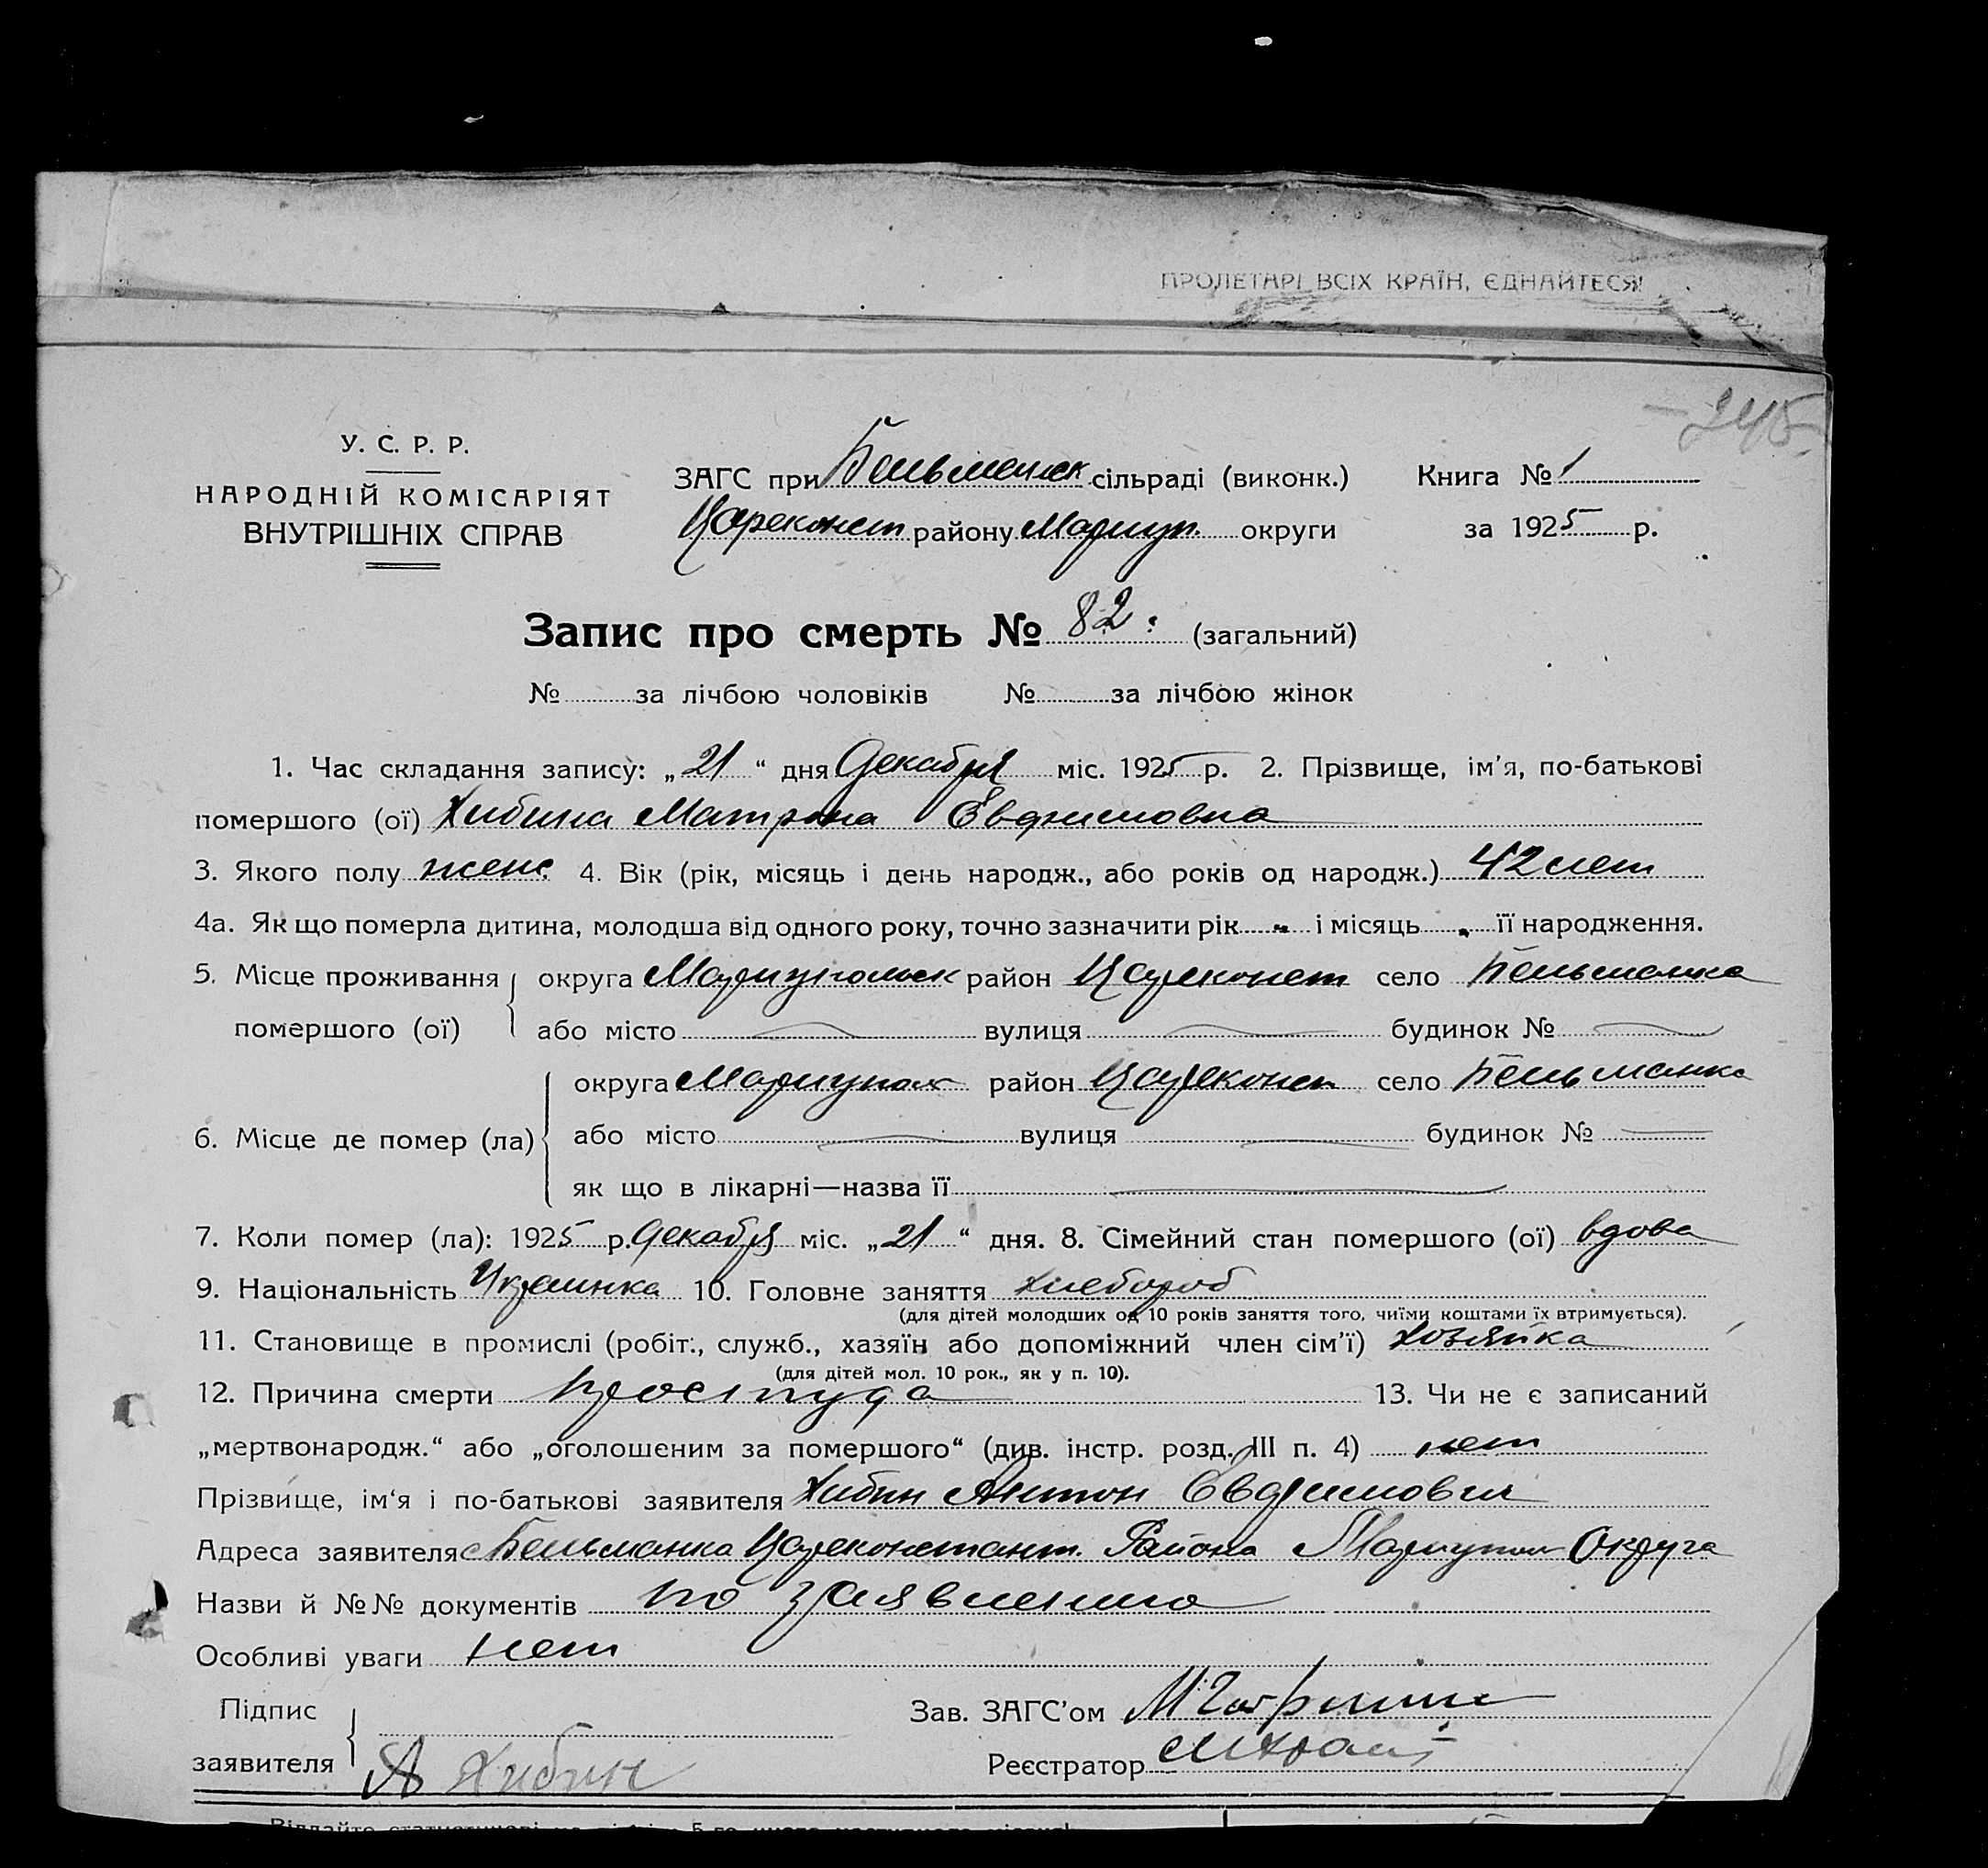 ПРОЛЕТАРІ ВСІХ КРАЇН, ЄДНАЙТЕСЯ!
245
У. С. Р. Р.
НАРОДНІЙ КОМІСАРІЯТ
ВНУТРІШНІХ СПРАВ
ЗАГС при Бельманск сільраді (виконк.)
Цареконст району Мариуп. округи
Книга № 1
за 1925 р.
Запис про смерть № 82 (загальний)
№ за лічбою чоловіків № за лічбою жінок
1. Час складання запису: „21“ дня Декабря міс. 1925 р. 2. Прізвище, ім'я, по-батькові
помершого (ої) Хибина Матрона Евфимовна
3. Якого полу женс. 4. Вік (рік, місяць і день народж., або років од народж.) 42 лет
4а. Як що померла дитина, молодша від одного року, точно зазначити рік „ і місяць „ її народження.
5. Місце проживання округа Мариупольск район Цареконст село Бельманка
помершого (ої) або місто — вулиця — будинок № —
округа Мариупол район Цареконст село Бельманка
6. Місце де помер (ла) або місто — вулиця — будинок № —
як що в лікарні—назва її —
7. Коли помер (ла): 1925 р. Декабря міс. „21“ дня. 8. Сімейний стан помершого (ої) вдова
9. Національність Украинка 10. Головне заняття хлебороб
(для дітей молодших од 10 років заняття того, чиїми коштами їх втримується).
11. Становище в промислі (робіт., служб., хазяїн або допоміжний член сім'ї) хозяйка
(для дітей мол. 10 рок., як у п. 10).
12. Причина смерти простуда 13. Чи не є записаний
„мертвонародж.“ або „оголошеним за помершого“ (див. інстр. розд. III п. 4) нет
Прізвище, ім'я і по-батькові заявителя Хибин Антон Евфимович
Адреса заявителя с Бельманка Цареконстант. Района Мариупол Округа
Назви й №№ документів по заявлению
Особливі уваги нет
Підпис
заявителя А Хибин
Зав. ЗАГС'ом
Реєстратор